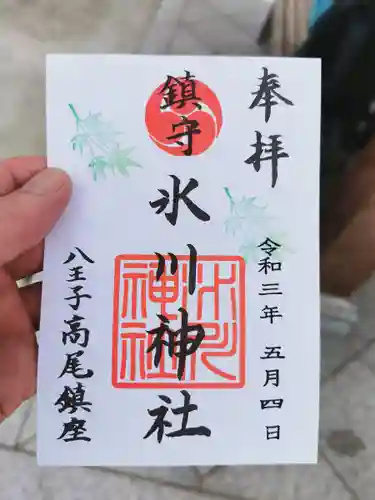 奉拝
令和三年 五月四日
鎮守
氷川神社
氷川神社
八王子高尾鎮座